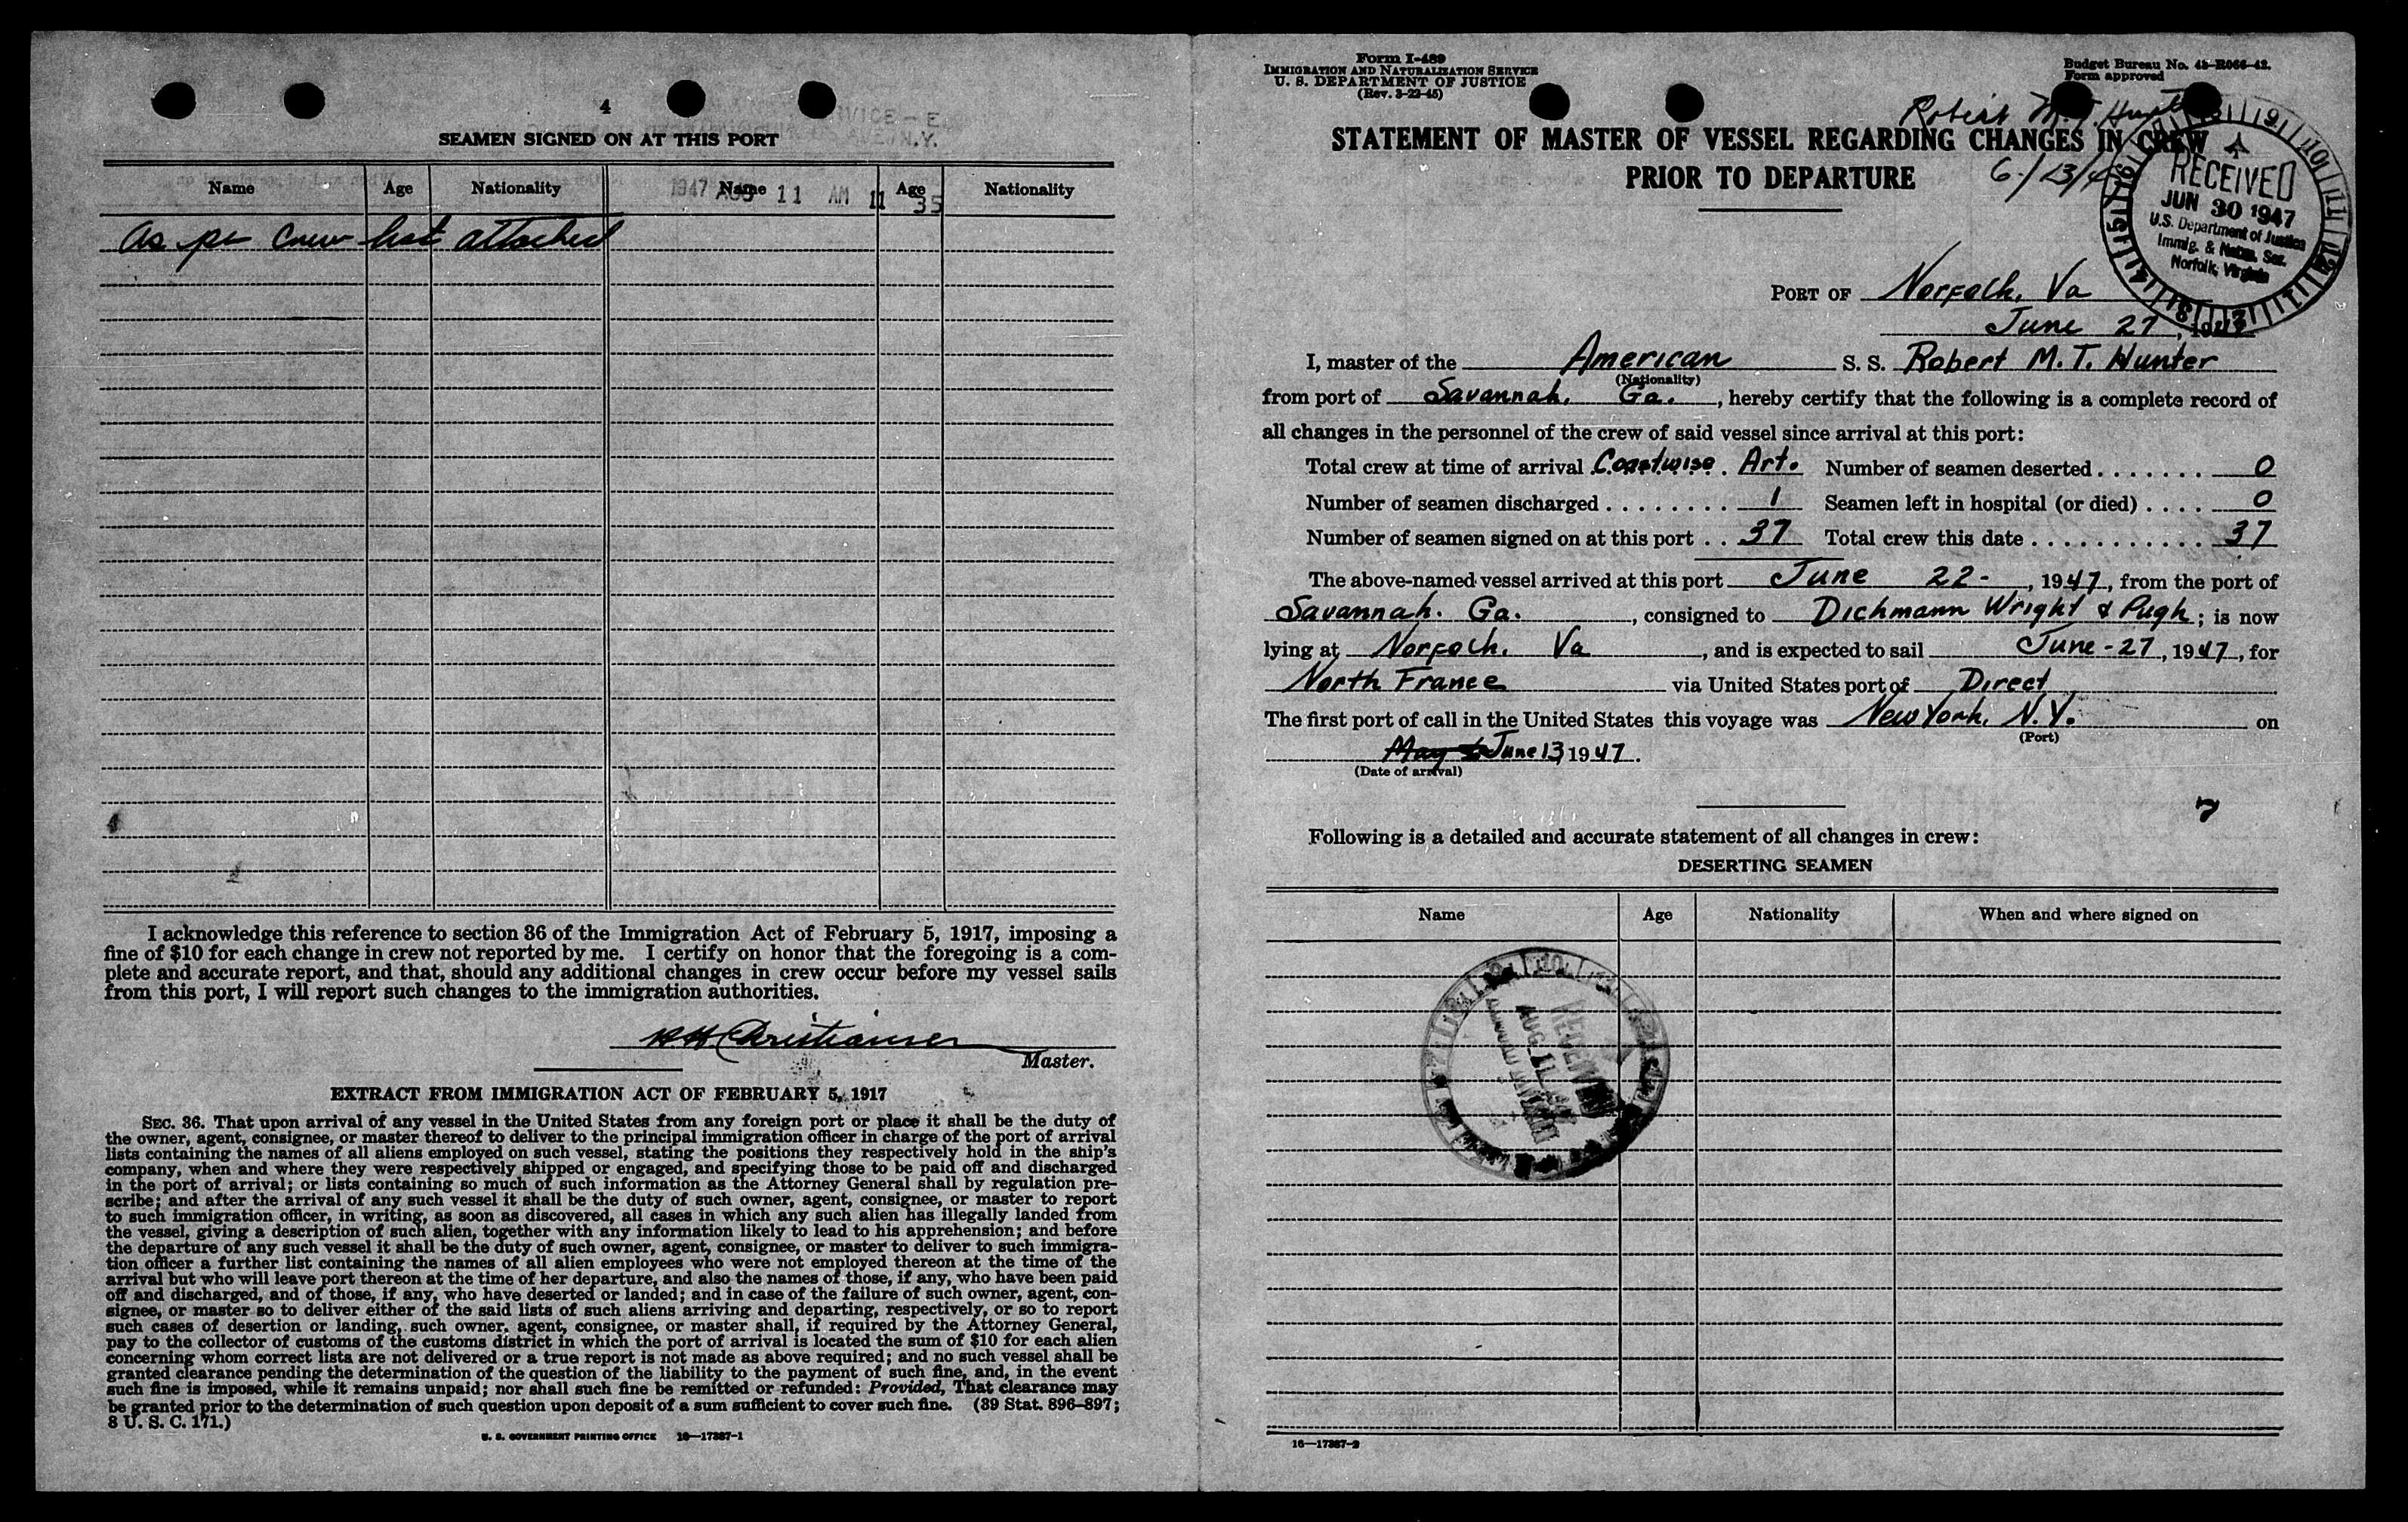 4
SEAMEN SIGNED ON AT THIS PORT
VICE - E.
N.Y.
Name Age Nationality Name Age Nationality
1947 AUG 11 AM 11 35
As per Crew list attached
I acknowledge this reference to section 36 of the Immigration Act of February 5, 1917, imposing a
fine of $10 for each change in crew not reported by me. I certify on honor that the foregoing is a com-
plete and accurate report, and that, should any additional changes in crew occur before my vessel sails
from this port, I will report such changes to the immigration authorities.
H. H. Christiansen
Master.
EXTRACT FROM IMMIGRATION ACT OF FEBRUARY 5, 1917
SEC. 36. That upon arrival of any vessel in the United States from any foreign port or place it shall be the duty of
the owner, agent, consignee, or master thereof to deliver to the principal immigration officer in charge of the port of arrival
lists containing the names of all aliens employed on such vessel, stating the positions they respectively hold in the ship's
company, when and where they were respectively shipped or engaged, and specifying those to be paid off and discharged
in the port of arrival; or lists containing so much of such information as the Attorney General shall by regulation pre-
scribe; and after the arrival of any such vessel it shall be the duty of such owner, agent, consignee, or master to report
to such immigration officer, in writing, as soon as discovered, all cases in which any such alien has illegally landed from
the vessel, giving a description of such alien, together with any information likely to lead to his apprehension; and before
the departure of any such vessel it shall be the duty of such owner, agent, consignee, or master to deliver to such immigra-
tion officer a further list containing the names of all alien employees who were not employed thereon at the time of the
arrival but who will leave port thereon at the time of her departure, and also the names of those, if any, who have been paid
off and discharged, and of those, if any, who have deserted or landed; and in case of the failure of such owner, agent, con-
signee, or master so to deliver either of the said lists of such aliens arriving and departing, respectively, or so to report
such cases of desertion or landing, such owner, agent, consignee, or master shall, if required by the Attorney General,
pay to the collector of customs of the customs district in which the port of arrival is located the sum of $10 for each alien
concerning whom correct lists are not delivered or a true report is not made as above required; and no such vessel shall be
granted clearance pending the determination of the question of the liability to the payment of such fine, and, in the event
such fine is imposed, while it remains unpaid; nor shall such fine be remitted or refunded: Provided, That clearance may
be granted prior to the determination of such question upon deposit of a sum sufficient to cover such fine. (39 Stat. 896-897;
8 U. S. C. 171.)
U. S. GOVERNMENT PRINTING OFFICE 16—17387-1
Form I-489
IMMIGRATION AND NATURALIZATION SERVICE
U. S. DEPARTMENT OF JUSTICE
(Rev. 3-22-45)
Budget Bureau No. 43-R066-42.
Form approved
Robert M. T. Hunt
STATEMENT OF MASTER OF VESSEL REGARDING CHANGES IN CREW
PRIOR TO DEPARTURE
6/13/4
RECEIVED
JUN 30 1947
U.S. Department of Justice
Immig. & Natzn. Ser.
Norfolk, Virginia
PORT OF Norfolk, Va
June 27, 1947
I, master of the American S. S. Robert M. T. Hunter
(Nationality)
from port of Savannah, Ga., hereby certify that the following is a complete record of
all changes in the personnel of the crew of said vessel since arrival at this port:
Total crew at time of arrival Coastwise Art. Number of seamen deserted 0
Number of seamen discharged 1 Seamen left in hospital (or died) 0
Number of seamen signed on at this port 37 Total crew this date 37
The above-named vessel arrived at this port June 22 -, 1947, from the port of
Savannah. Ga., consigned to Dichmann Wright & Pugh; is now
lying at Norfolk, Va, and is expected to sail June - 27, 1947, for
North France via United States port of Direct
The first port of call in the United States this voyage was New York, N.Y. on
(Port)
May June 13 1947.
(Date of arrival)
7
Following is a detailed and accurate statement of all changes in crew:
DESERTING SEAMEN
Name Age Nationality When and where signed on
RECEIVED
AUG 11
16—17387-2